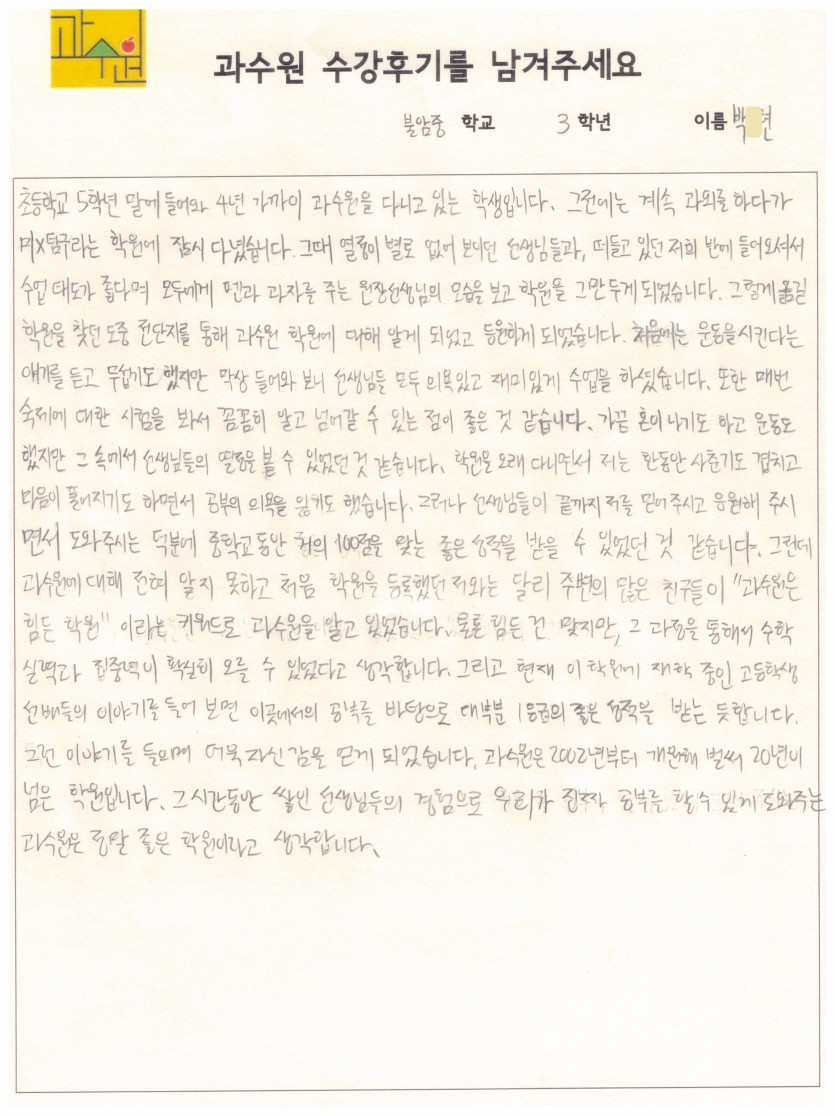 과수원
과수원 수강후기를 남겨주세요
불암중 학교 3 학년 이름 백 현
초등학교 5학년 말에 들어와 4년 가까이 과수원을 다니고 있는 학생입니다. 그전에는 계속 과외를 하다가
미X탐구라는 학원에 잠시 다녔습니다. 그때 열정이 별로 없어 보이던 선생님들과, 떠들고 있던 저희 반에 들어오셔서
수업 태도가 좋다며 모두에게 펜과 과자를 주는 원장선생님의 모습을 보고 학원을 그만두게 되었습니다. 그렇게 옮길
학원을 찾던 도중 전단지를 통해 과수원 학원에 대해 알게 되었고 등원하게 되었습니다. 처음에는 운동을시킨다는
얘기를 듣고 무섭기도 했지만 막상 들어와 보니 선생님들 모두 의욕있고 재미있게 수업을 하셨습니다. 또한 매번
숙제에 대한 시험을 봐서 꼼꼼히 알고 넘어갈 수 있는 점이 좋은 것 같습니다. 가끔 혼이나기도 하고 운동도
했지만 그 속에서 선생님들의 열정을 볼 수 있었던 것 같습니다. 학원을 오래 다니면서 저는 한동안 사춘기도 겹치고
마음이 풀어지기도 하면서 공부의 의욕을 잃기도 했습니다. 그러나 선생님들이 끝까지 저를 믿어 주시고 응원해 주시
면서 도와주시는 덕분에 중학교동안 거의 100점을 맞는 좋은 성적을 받을 수 있었던 것 같습니다. 그런데
과수원에 대해 전혀 알지 못하고 처음 학원을 등록했던 저와는 달리 주변의 많은 친구들이 "과수원은
힘든 학원" 이라는 키워드로 과수원을 알고 있었습니다. 물론 힘든 건 맞지만, 그 과정을 통해서 수학
실력과 집중력이 확실히 오를 수 있었다고 생각합니다. 그리고 현재 이 학원에 재학 중인 고등학생
선배들의 이야기를 들어 보면 이곳에서의 공부를 바탕으로 대부분 1등급의 좋은 성적을 받는 듯합니다.
그런 이야기를 들으며 더욱 자신감을 얻게 되었습니다. 과수원은 2002년부터 개원해 벌써 20년이
넘은 학원입니다. 그 시간동안 쌓인 선생님들의 경험으로 우리가 진짜 공부를 할 수 있게 도와주는
과수원은 정말 좋은 학원이라고 생각합니다.